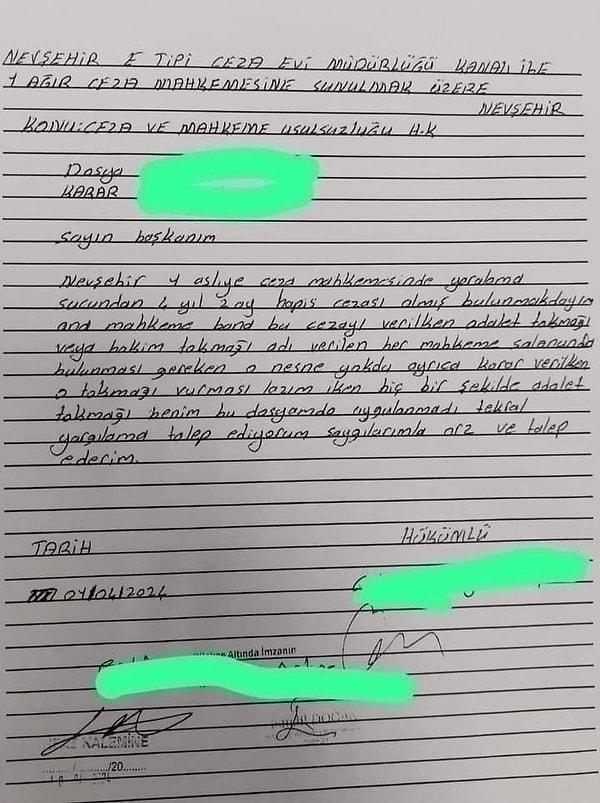 NEVŞEHİR E TİPİ CEZA EVİ MÜDÜRLÜĞÜ KANALI İLE
1 AĞIR CEZA MAHKEMESİNE SUNULMAK ÜZERE
NEVŞEHİR
KONU: CEZA VE MAHKEME USULSUZLUĞU H.K
Dosya
KARAR
Sayın başkanım
Nevşehir 1 asliye ceza mahkemesinde yaralama
sucundan 4 yıl 2 ay hapis cezası almış bulunmakdayım
ana mahkeme bana bu cezayı verilken adalet tokmağı
veya hakim tokmağı adı verilen her mahkeme salanunda
bulunması gereken o nesne yokdu ayrıca karar verilken
o tokmağı vurması lazım iken hiç bir şekilde adalet
tokmağı benim bu dosyamda uygulanmadı tekral
yargılama talep ediyorum saygılarımla arz ve talep
ederim.
HÜKÜMLÜ
TARİH
04/04/2024
Altında İmzanın
KALEMİNE
/20